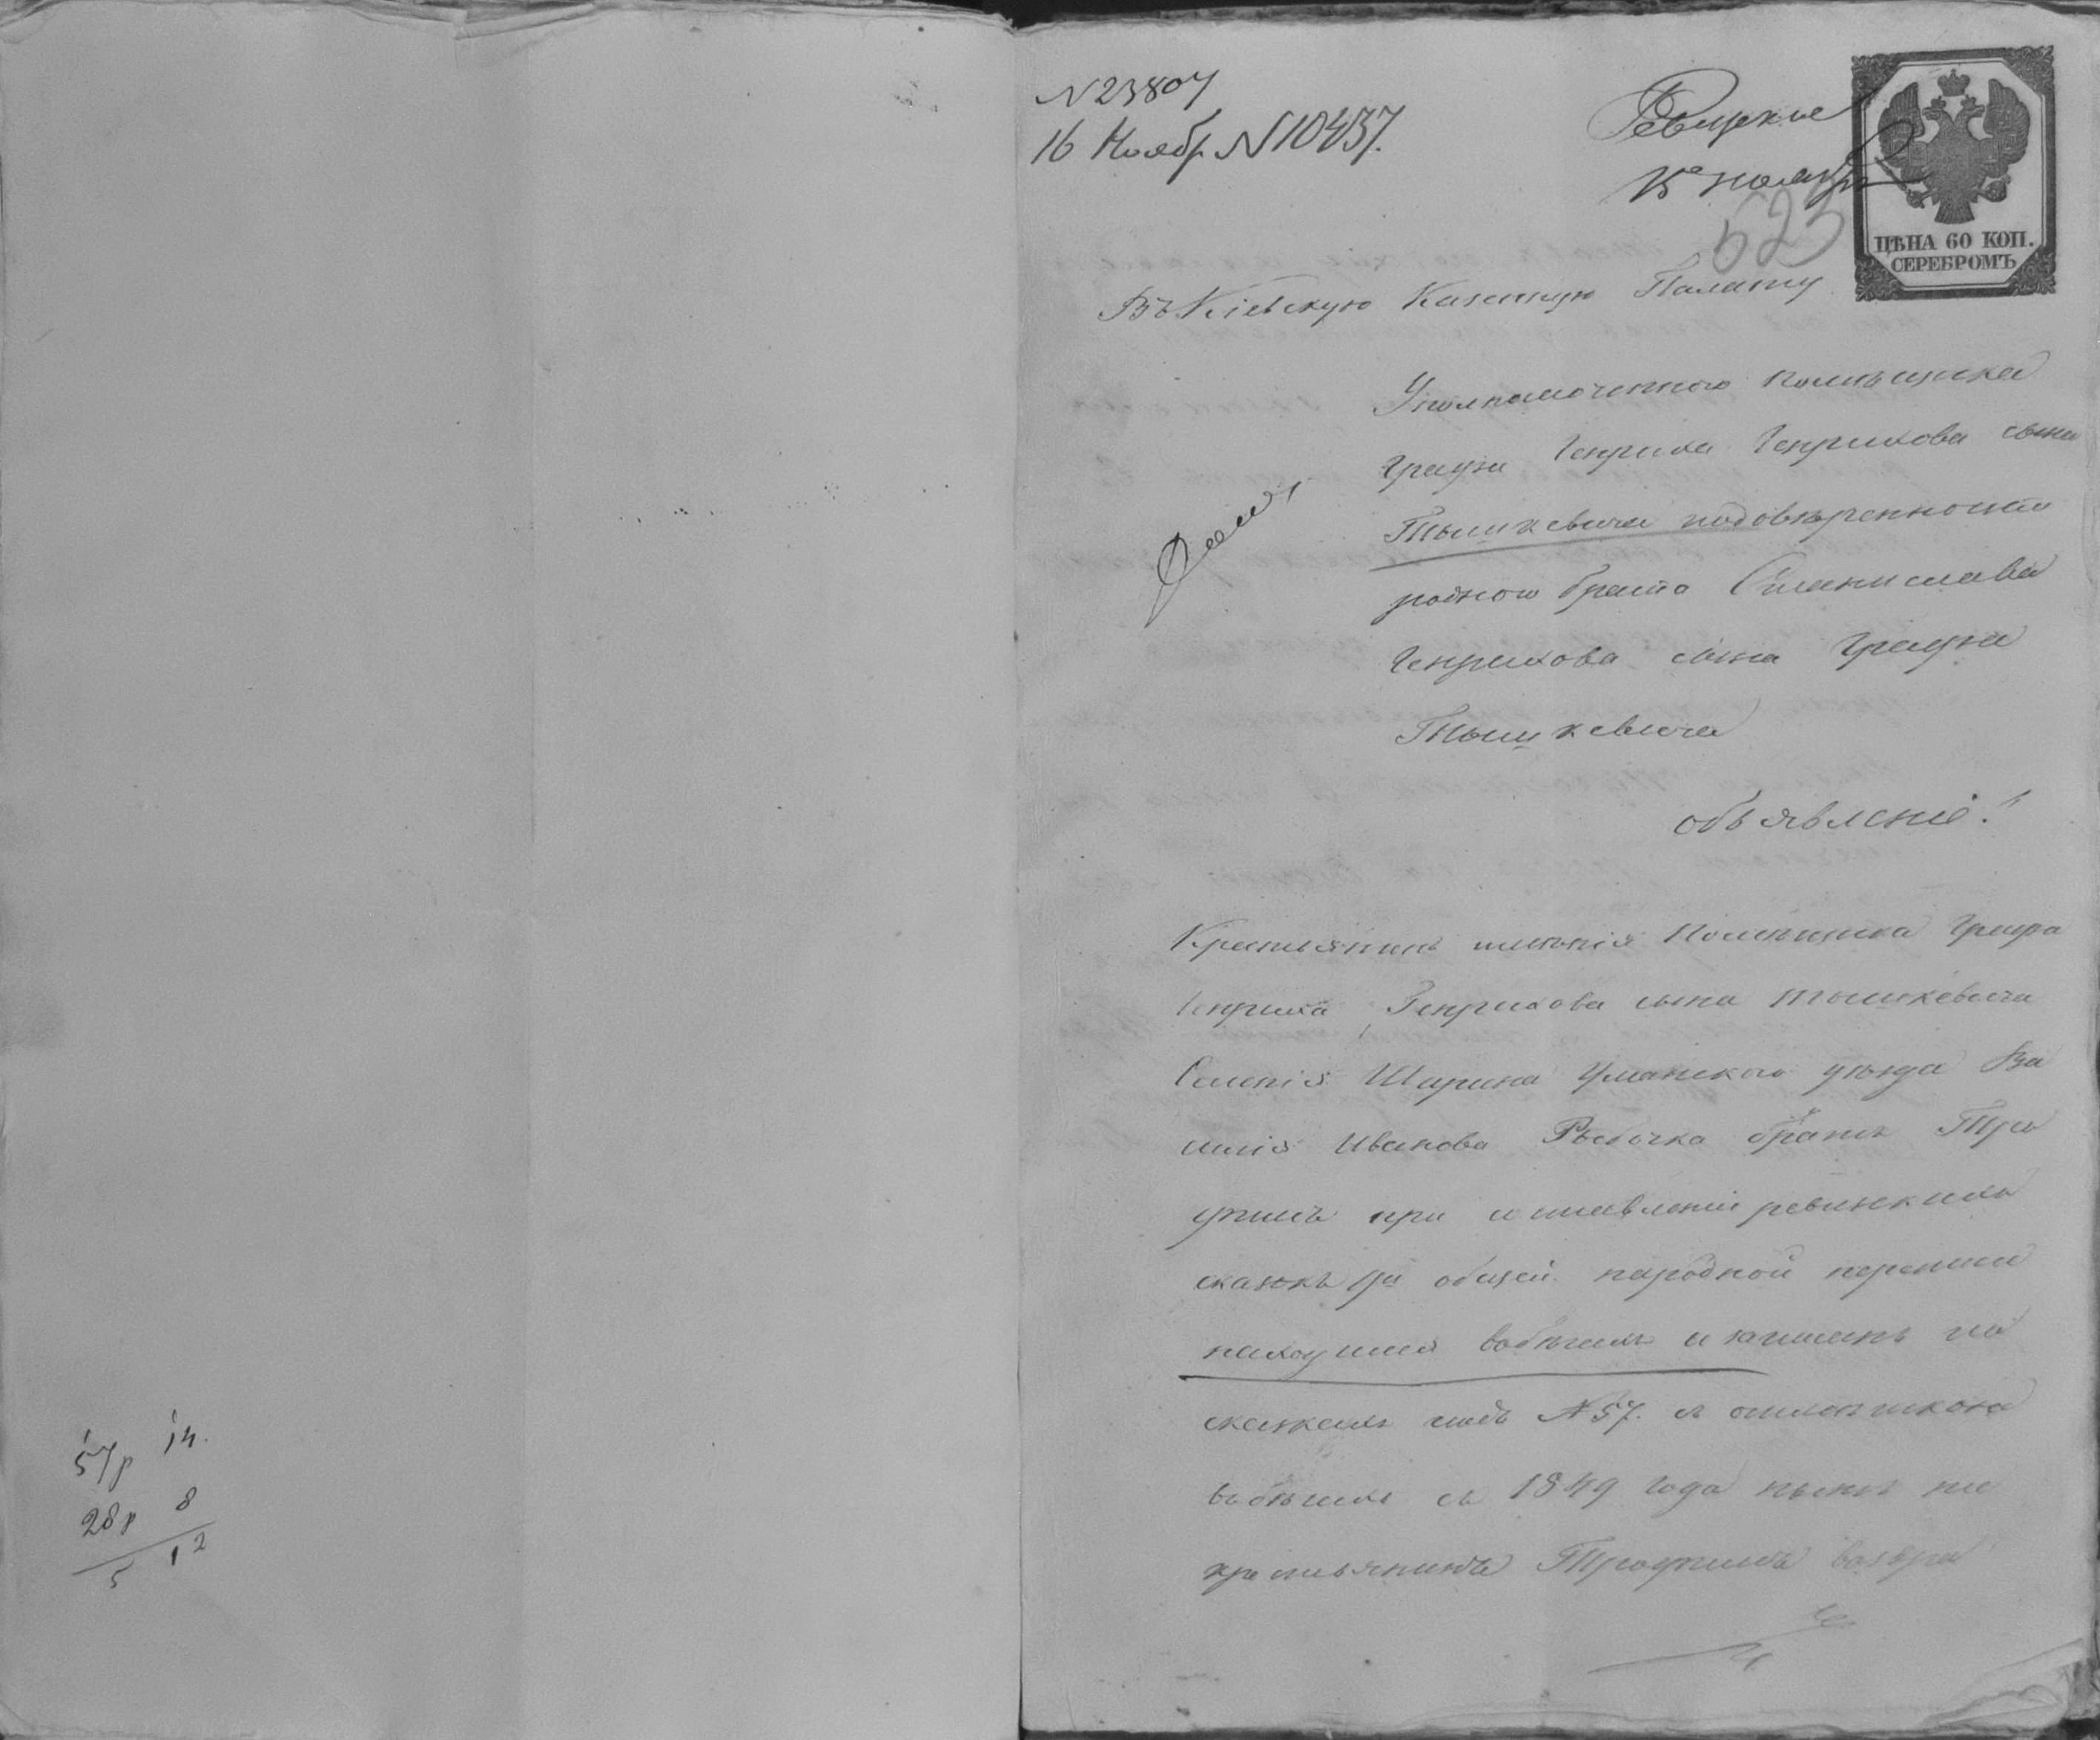 N 23807
16 Ноябр N 10437.
Ревизские
15 ноября
623
ЦѢНА 60 КОП.
СЕРЕБРОМЪ
Въ Кіевскую Казенную Палату
Уполномоченного помѣщика
Графа Генриха Генрихова сына
Тышкевича подовѣренности
родного брата Станислава
Генрихова сына Графа
Тышкевича
объявленіе!
Крестьянинъ имѣнія Помѣщика Графа
Генриха Генрихова сына Тышкевича
Селенія Шарина Уманского уѣзда Ва
силія Иванова Рыбочка братъ Тро
фимъ при составленіи ревизкихъ
сказокъ общей народной переписи
находился вобѣгахъ и записанъ по
сказкамъ подъ N 57. съ отмѣткою
вобѣгахъ съ 1849 года нынѣ
крестьянинъ Трофимъ возвра
57р 14.
28р 8
5 12